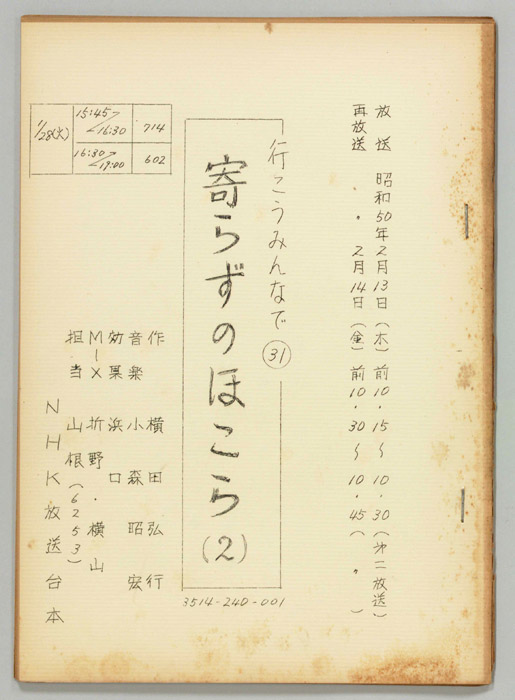 放送 昭和50年2月13日(木)前10・15～10・30(第二放送)
再放送 〃・2月14日(金)前10・30～10・45(〃)
行こうみんなで㉛
寄らずのほこら(2)
3514-240-001
1/28(火)
15:45〜16:30 714
16:30〜19:00 602
作 横田弘行
音楽 小森昭宏
効果 浜口
MーX 折野・横山
担当 山根(6253)
NHK放送台本